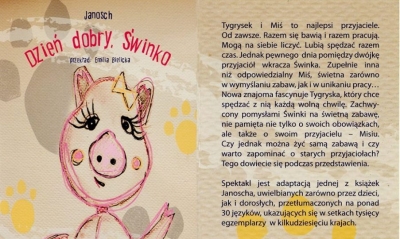 Janosch
Dzień dobry, Świnko
przekład: Emilia Bielicka
Tygrysek i Miś to najlepsi przyjaciele.
Od zawsze. Razem się bawią i razem pracują.
Mogą na siebie liczyć. Lubią spędzać razem
czas. Jednak pewnego dnia pomiędzy dwójkę
przyjaciół wkracza Świnka. Zupełnie inna
niż odpowiedzialny Miś, świetna zarówno
w wymyślaniu zabaw, jak i w unikaniu pracy…
Nowa znajoma fascynuje Tygryska, który chce
spędzać z nią każdą wolną chwilę. Zachwy-
cony pomysłami Świnki na świetną zabawę,
nie pamięta nie tylko o swoich obowiązkach,
ale także o swoim przyjacielu – Misiu.
Czy jednak można żyć samą zabawą i czy
warto zapominać o starych przyjaciołach?
Tego dowiecie się podczas przedstawienia.
Spektakl jest adaptacją jednej z książek
Janoscha, uwielbianych zarówno przez dzieci,
jak i dorosłych, przetłumaczonych na ponad
30 języków, ukazujących się w setkach tysięcy
egzemplarzy w kilkudziesięciu krajach.